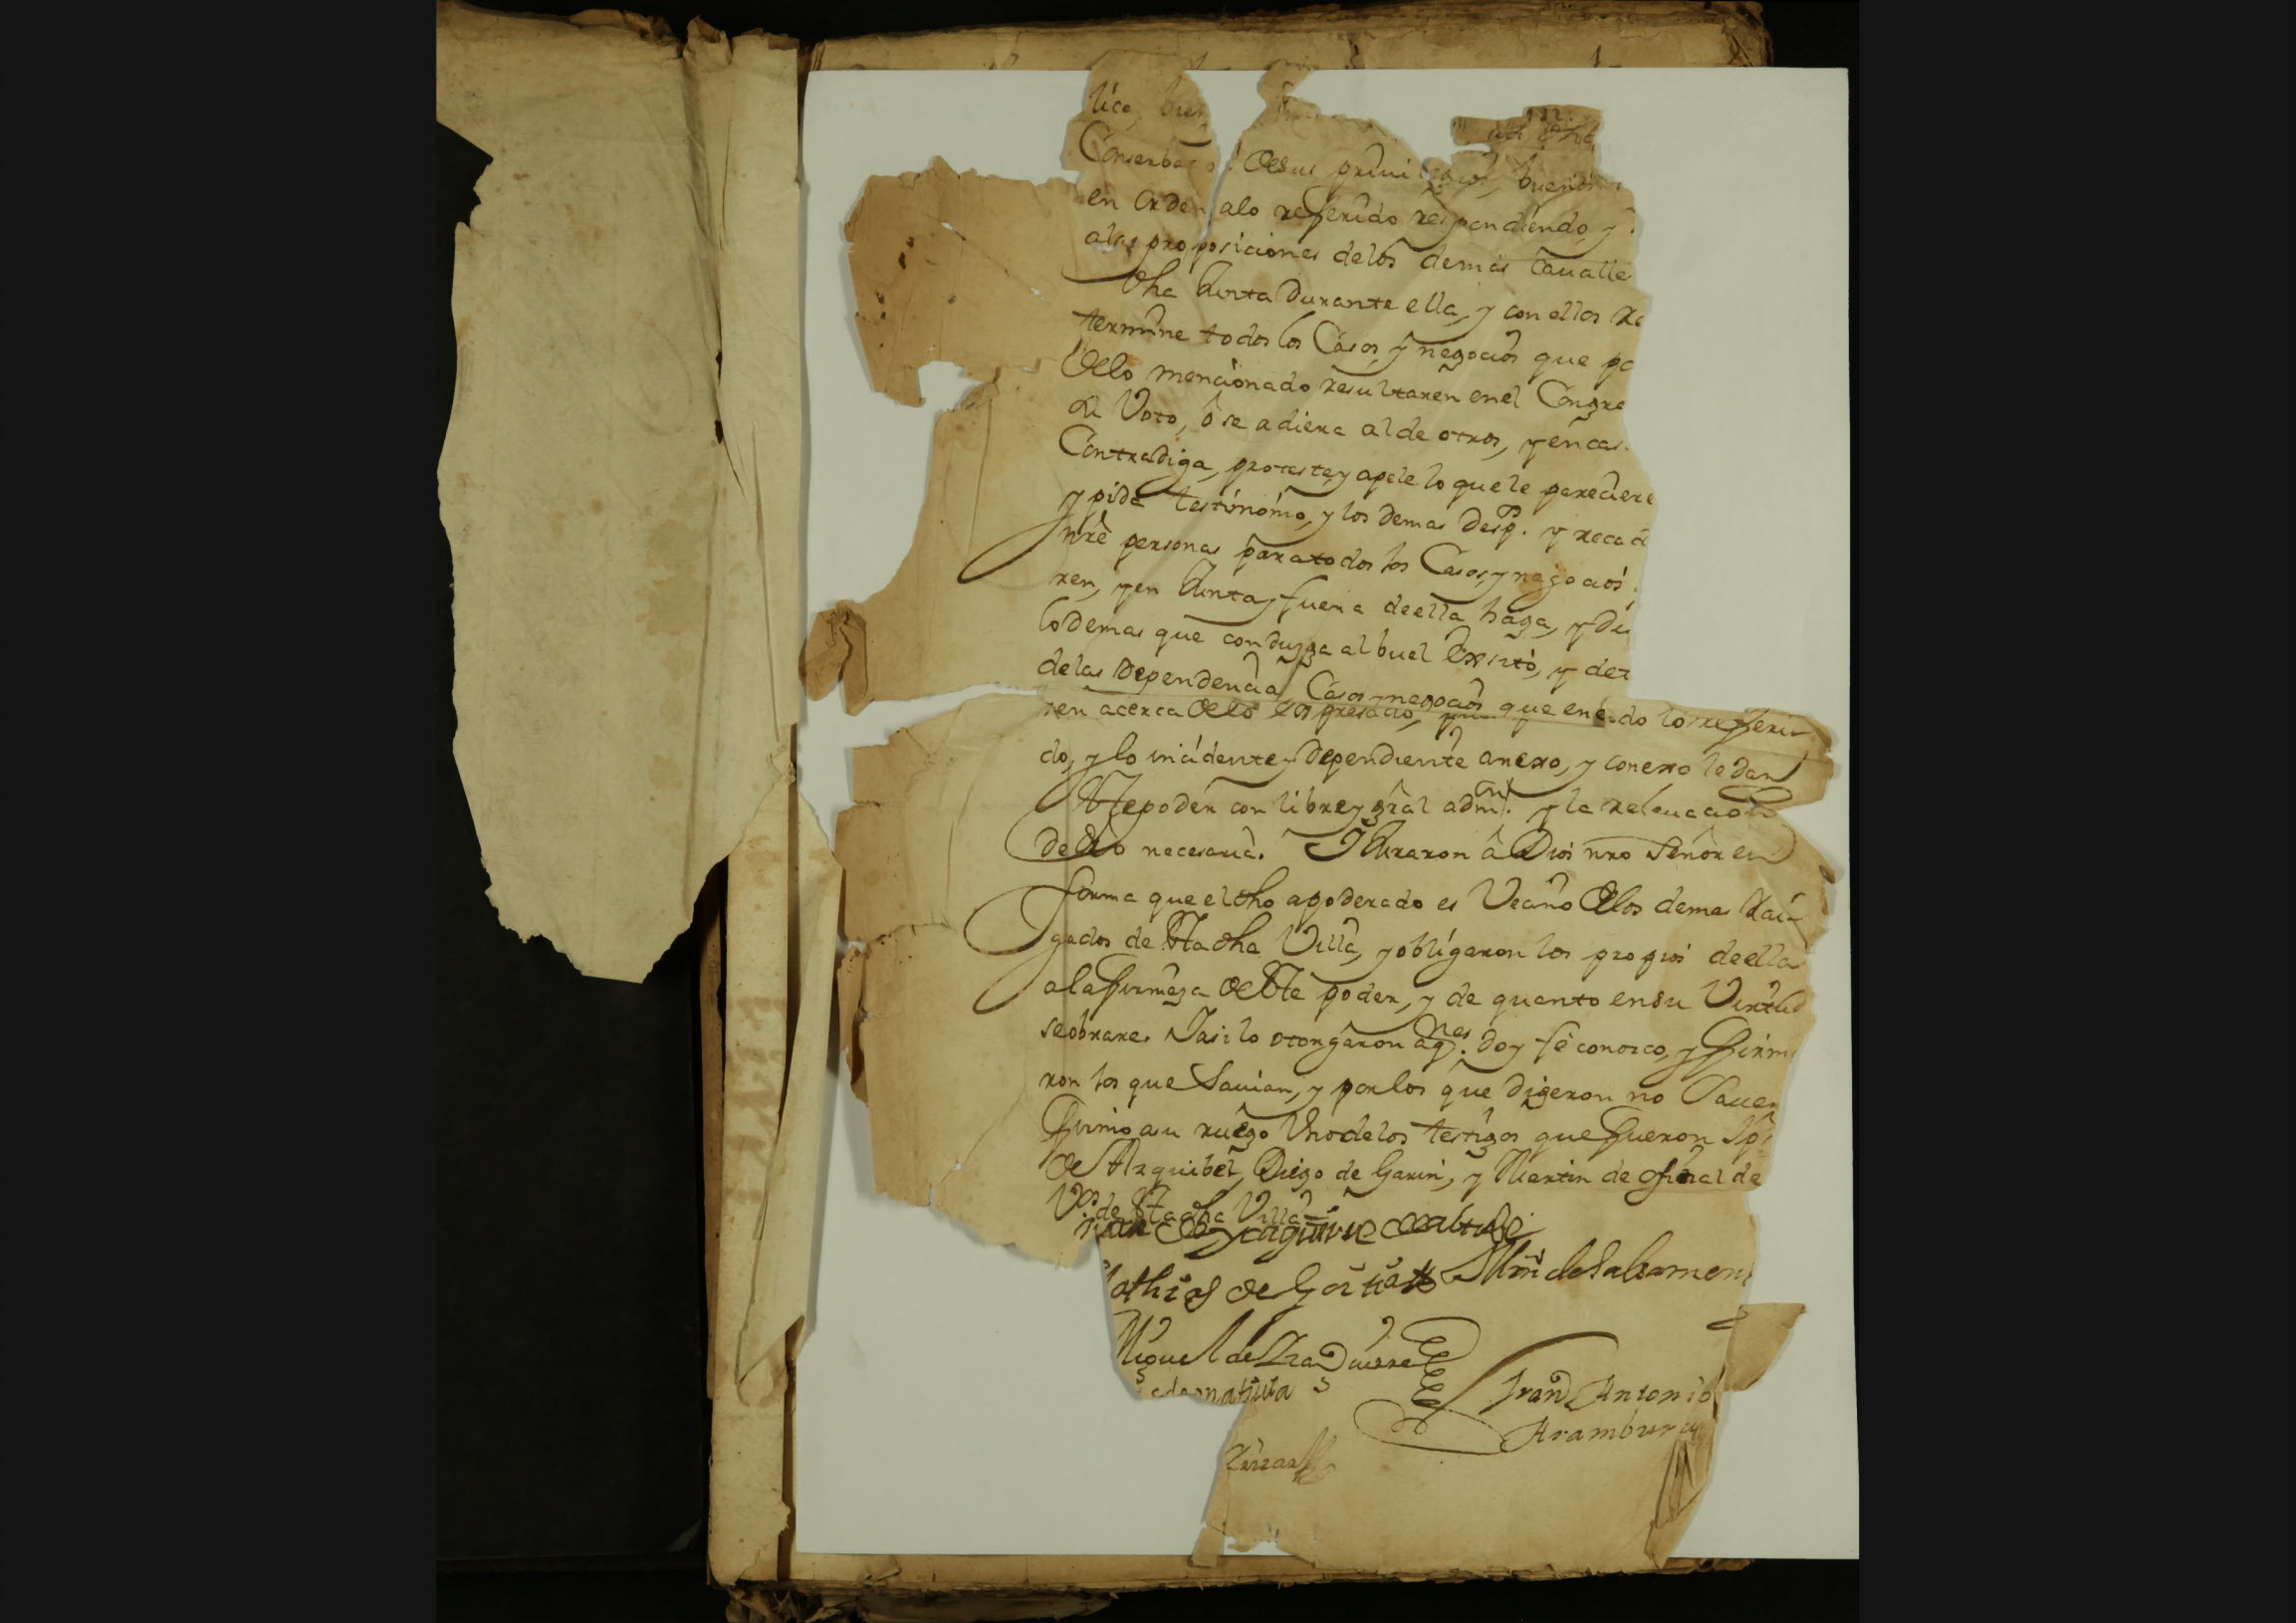 lica, bien
Conserbacio Desus privi buenos
en orden alo referido respondiendo, y
alas proposiciones delos demas Cavalle
dha Junta Durante ella, y con ellos Re
termine todos los Casos, y negocios que po
Dello mencionado resultaren enel Congre
de Voto, ó se adiera alde otros, y en cas
Contradiga, proteste y apele lo que le pareciere
y pida testimonio, y los demas Desp.os y recad
nrê personas para todos los Casos, y negocios
ren, y en Junta y fuera deella haga, y Di
lo demas que conduzga al buel Exsito, y det
delas Dependencias Casos y negocios que en todo lo referi
ren acerca Delo expresado,
do, y lo incidente y Dependiente anexo, y conexo le dan
este poder con libre y gral admn. y la relevacion
de dro necesaria. Y Juraron â Dios nro Señor en
forma que el dho apoderado es Vecino Delos demas Rai
gados de esta dha Villa, y obligaron los propios deella
ala firmeza De este poder, y de quanto en su Virtud
se obrare. Y asi lo otorgaron aq.nes doy fê conozco, y firma
ron los que Savian, y por los que digeron no Saver
firmo asu ruego Uno de los testigos que fueron
de Azquibel, Diego de Garin, y Martin de
V.os de esta dha Villa
athias de Goitia Mrn de Salsamen
Miguel de
Fran.co Antonio
Aramburu